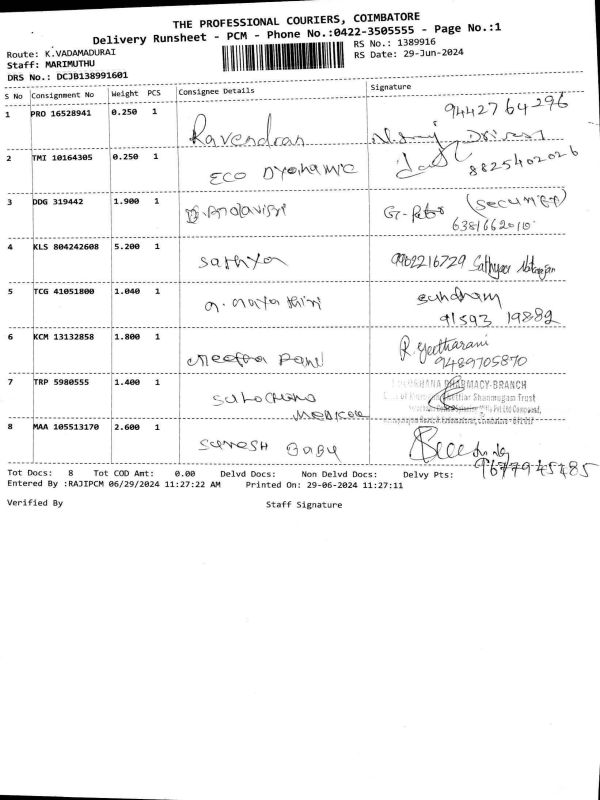 THE PROFESSIONAL COURIERS, COIMBATORE
Delivery Runsheet - PCM - Phone No.:0422-3505555 - Page No.:1
Route: K.VADAMADURAI
RS No.: 1389916
Staff: MARIMUTHU
RS Date: 29-Jun-2024
DRS No.: DCJB138991601
S No Consignment No Weight PCS Consignee Details Signature
1 PRO 16528941 0.250 1 Ravendran 9442764296
2 TMI 10164305 0.250 1 ECO 8825402026
3 DDG 319442 1.900 1 (Security)
6381662010
4 KLS 804242608 5.200 1 Sathya 9962216729 Sathya Natarajan
5 TCG 41051800 1.040 1 Sundharam
91593 19882
6 KCM 13132858 1.800 1 R. Geetharani
9489705870
7 TRP 5980555 1.400 1 Sulochana PHARMACY-BRANCH
Medical Shanmugam Trust
8 MAA 105513170 2.600 1 Suresh Babu
9677945485
Tot Docs: 8 Tot COD Amt: 0.00 Delvd Docs: Non Delvd Docs: Delvy Pts:
Entered By :RAJIPCM 06/29/2024 11:27:22 AM Printed On: 29-06-2024 11:27:11
Verified By Staff Signature